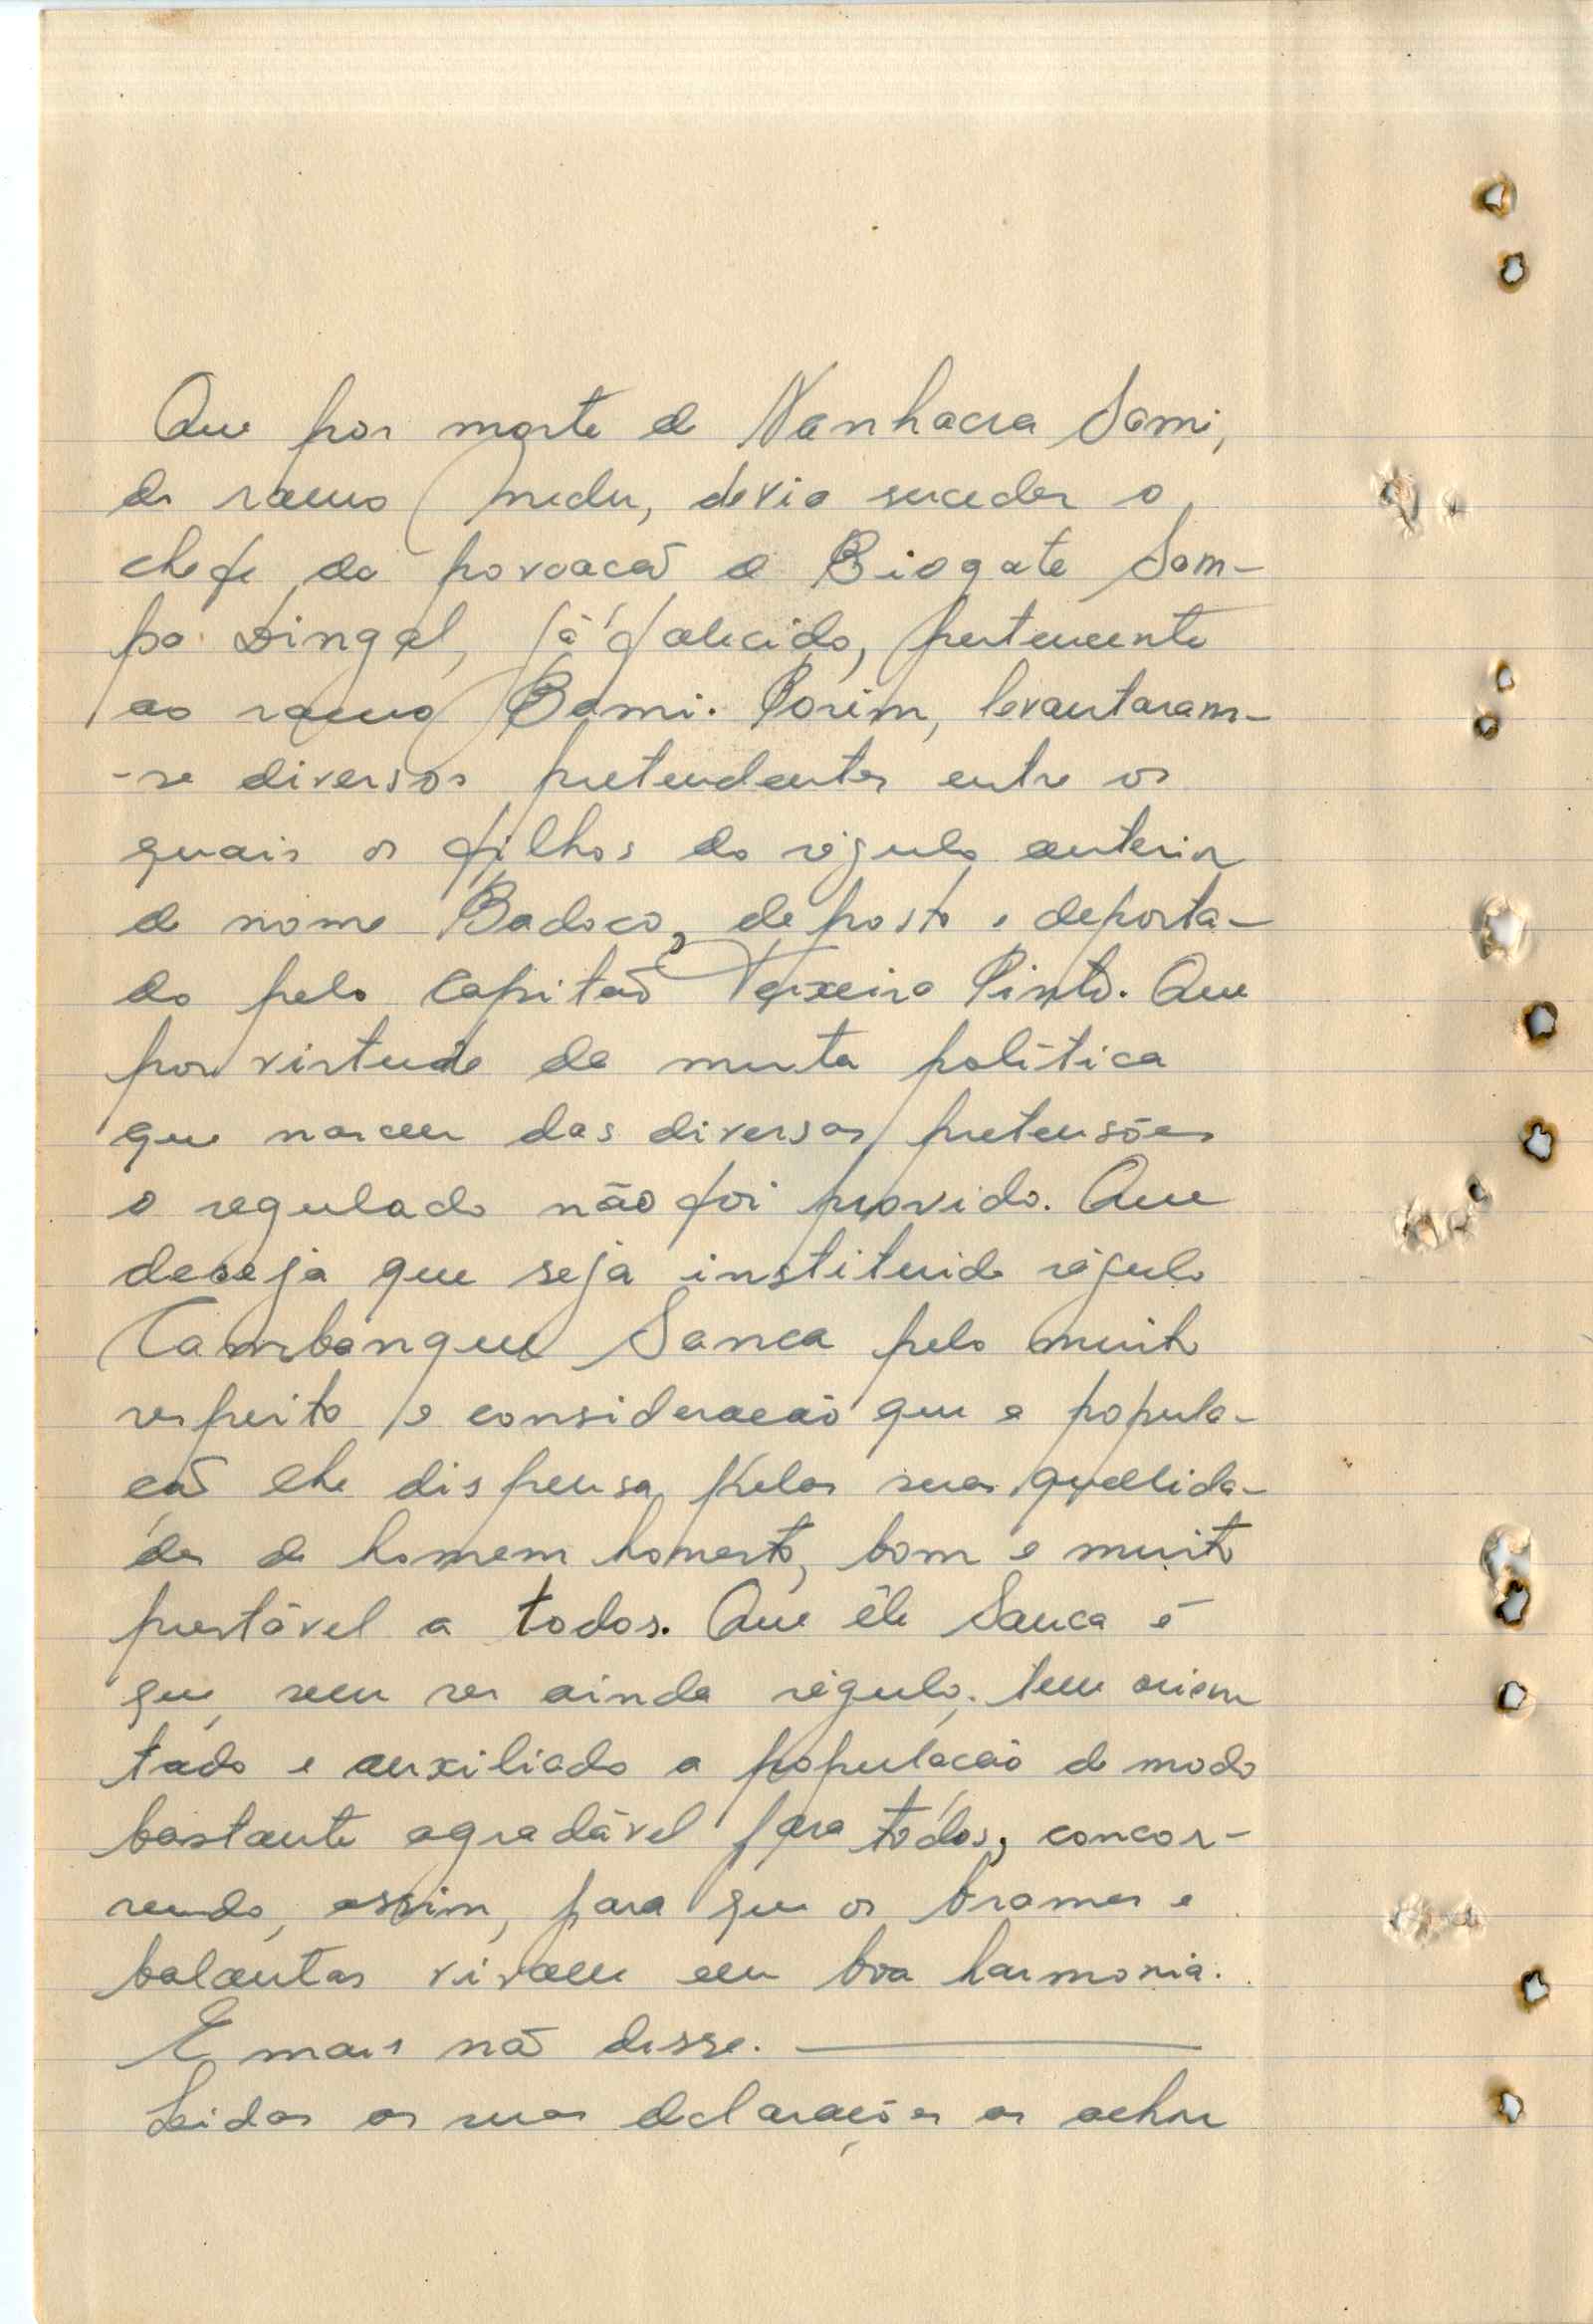 Que por morte de Nanhacra Sami,
do ramo Medu, devia suceder o
chefe da povoacão de Biogate Sam-
pa Dingal, já falecido, pertencente
ao ramo Bami. Porém, levantaram-
-se diversos pretendentes entre os
quais os filhos do régulo anterior
de nome Badoco, deposto e deporta-
do pelo Capitão Teixeira Pinto. Que
por virtude da muita política
que nasceu das diversas pretensões
o regulado não foi provido. Que
deseja que seja instituido régulo
Cambanque Sanca pelo muito
respeito e consideracão que a popula-
cão lhe dispensa pelas suas qualida-
des de homem honesto, bom e muito
prestável a todos. Que êle Sanca é
que, sem ser ainda régulo, tem orien
tado e auxiliado a populacão de modo
bastante agradável para todos, concor-
rendo, assim, para que os brames e
balantas vivam em boa harmonia.
E mais não disse.
Lidas as suas declarações as achou